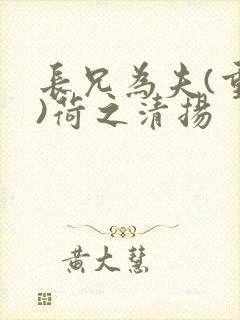 長兄為夫(重
)荷之清揚
黃大慧